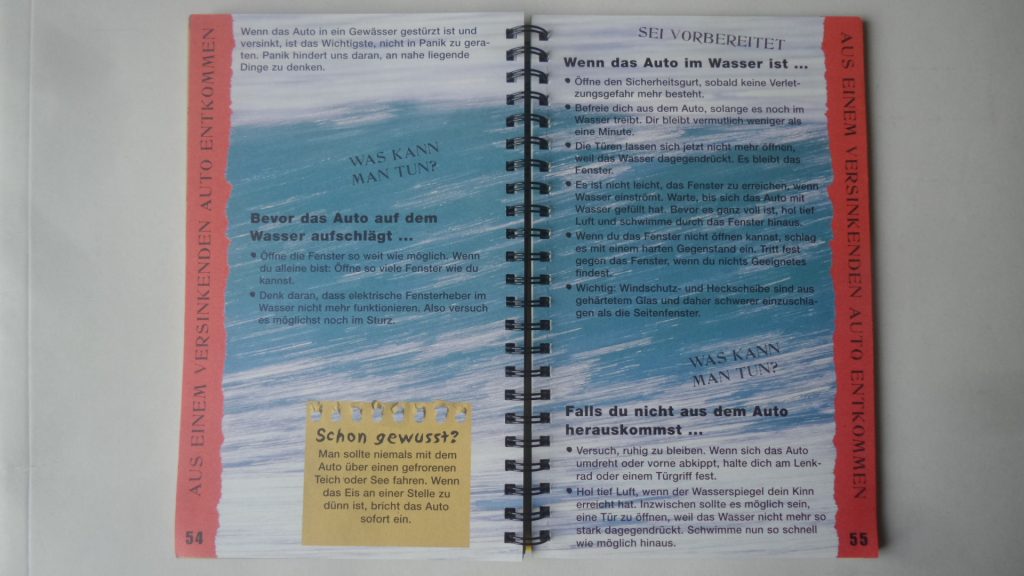 AUS EINEM VERSINKENDEN AUTO ENTKOMMEN
Wenn das Auto in ein Gewässer gestürzt ist und
versinkt, ist das Wichtigste, nicht in Panik zu gera-
ten. Panik hindert uns daran, an nahe liegende
Dinge zu denken.
WAS KANN
MAN TUN?
Bevor das Auto auf dem
Wasser aufschlägt ...
• Öffne die Fenster so weit wie möglich. Wenn
du alleine bist: Öffne so viele Fenster wie du
kannst.
• Denk daran, dass elektrische Fensterheber im
Wasser nicht mehr funktionieren. Also versuch
es möglichst noch im Sturz.
Schon gewusst?
Man sollte niemals mit dem
Auto über einen gefrorenen
Teich oder See fahren. Wenn
das Eis an einer Stelle zu
dünn ist, bricht das Auto
sofort ein.
54
SEI VORBEREITET
Wenn das Auto im Wasser ist ...
• Öffne den Sicherheitsgurt, sobald keine Verlet-
zungsgefahr mehr besteht.
• Befreie dich aus dem Auto, solange es noch im
Wasser treibt. Dir bleibt vermutlich weniger als
eine Minute.
• Die Türen lassen sich jetzt nicht mehr öffnen,
weil das Wasser dagegendrückt. Es bleibt das
Fenster.
• Es ist nicht leicht, das Fenster zu erreichen, wenn
Wasser einströmt. Warte, bis sich das Auto mit
Wasser gefüllt hat. Bevor es ganz voll ist, hol tief
Luft und schwimme durch das Fenster hinaus.
• Wenn du das Fenster nicht öffnen kannst, schlag
es mit einem harten Gegenstand ein. Tritt fest
gegen das Fenster, wenn du nichts Geeignetes
findest.
• Wichtig: Windschutz- und Heckscheibe sind aus
gehärtetem Glas und daher schwerer einzuschla-
gen als die Seitenfenster.
WAS KANN
MAN TUN?
Falls du nicht aus dem Auto
herauskommst ...
• Versuch, ruhig zu bleiben. Wenn sich das Auto
umdreht oder vorne abkippt, halte dich am Lenk-
rad oder einem Türgriff fest.
• Hol tief Luft, wenn der Wasserspiegel dein Kinn
erreicht hat. Inzwischen sollte es möglich sein,
eine Tür zu öffnen, weil das Wasser nicht mehr so
stark dagegendrückt. Schwimme nun so schnell
wie möglich hinaus.
AUS EINEM VERSINKENDEN AUTO ENTKOMMEN
55